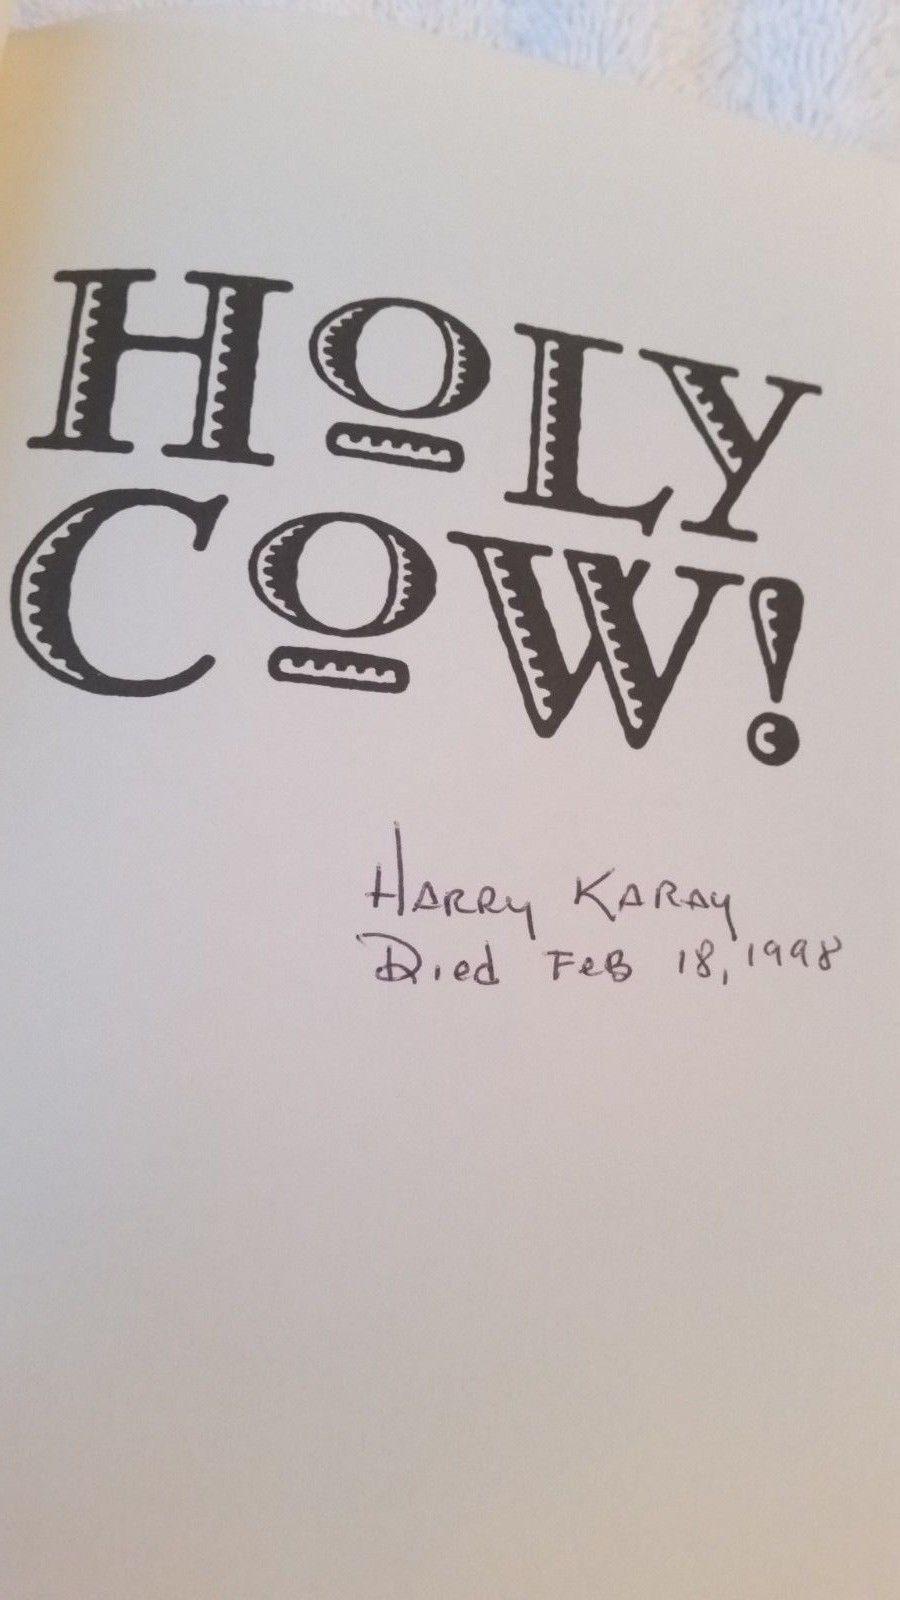 HOLY
COW!
HARRY KARAY
Died FeB 18, 1998